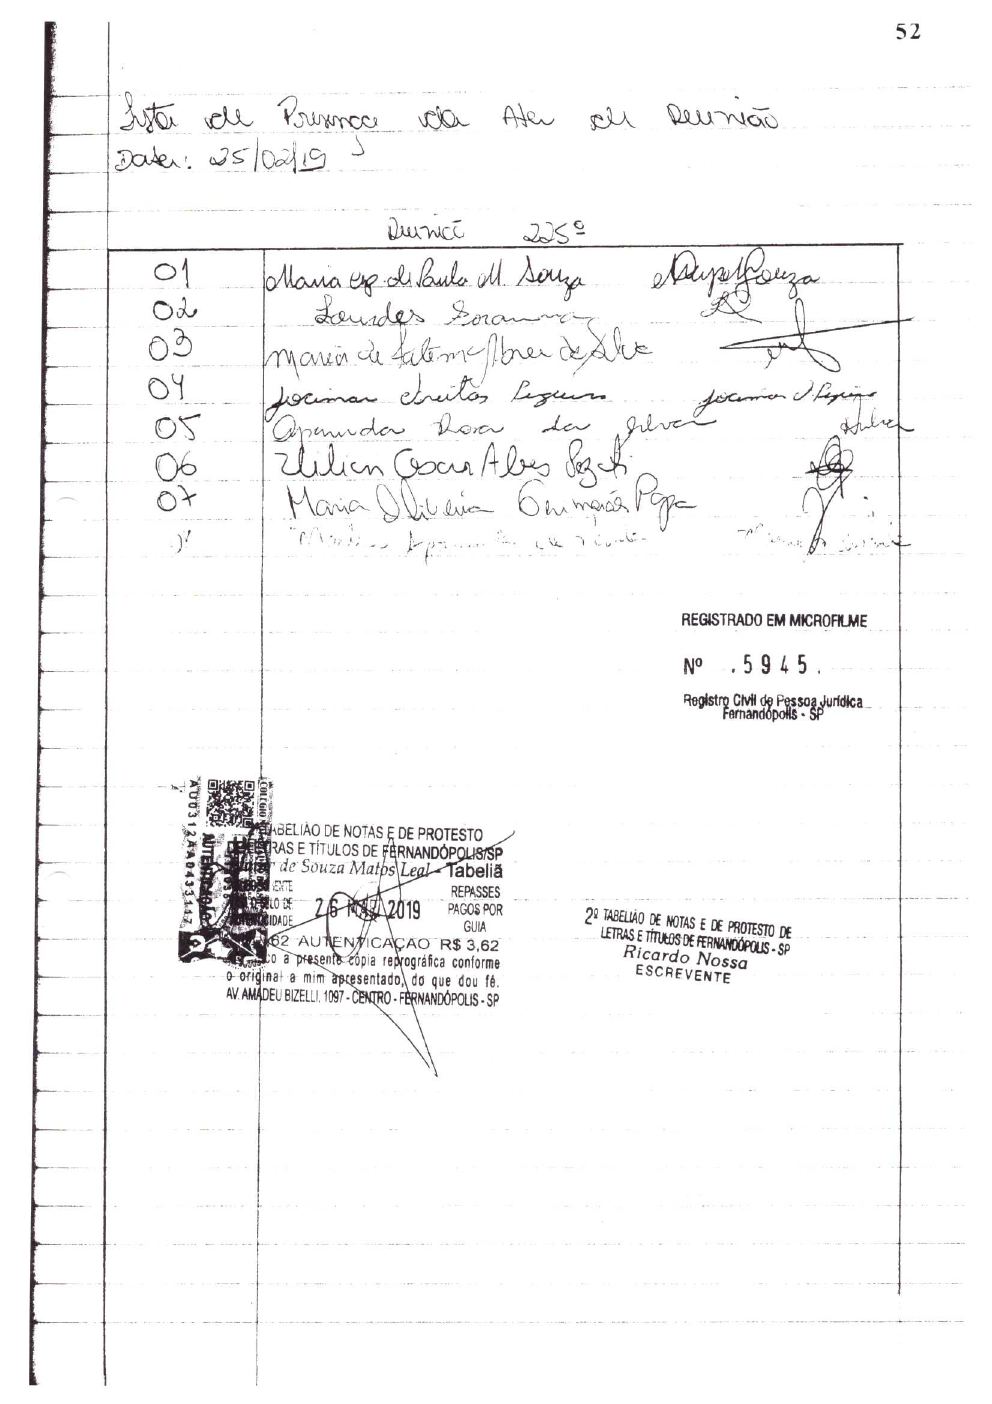 52
Lista de Presença da Ata de Reunião
Data: 25/02/19
Reunião 225º
01 Maria ap. de Paula M. Souza
02 Lourdes
03 Maria de Fatima Abreu da Silva
04 Jocimar
05 Aparecida Rosa da Silva Silva
06 Cesar Alves
07 Maria Oliveira Guimarães Papa
REGISTRADO EM MICROFILME
Nº .5945.
Registro Civil de Pessoa Jurídica
Fernandópolis - SP
AU0312AA0433447
AUTENTICAÇÃO
TABELIÃO DE NOTAS E DE PROTESTO
LETRAS E TÍTULOS DE FERNANDÓPOLIS/SP
de Souza Matos Leal - Tabeliã
REPASSES
26 2019 PAGOS POR
GUIA
62 AUTENTICAÇÃO R$ 3,62
a presente cópia reprográfica conforme
o original a mim apresentado, do que dou fé.
AV. AMADEU BIZELLI, 1097 - CENTRO - FERNANDÓPOLIS - SP
2º TABELIÃO DE NOTAS E DE PROTESTO DE
LETRAS E TÍTULOS DE FERNANDÓPOLIS - SP
Ricardo Nossa
ESCREVENTE